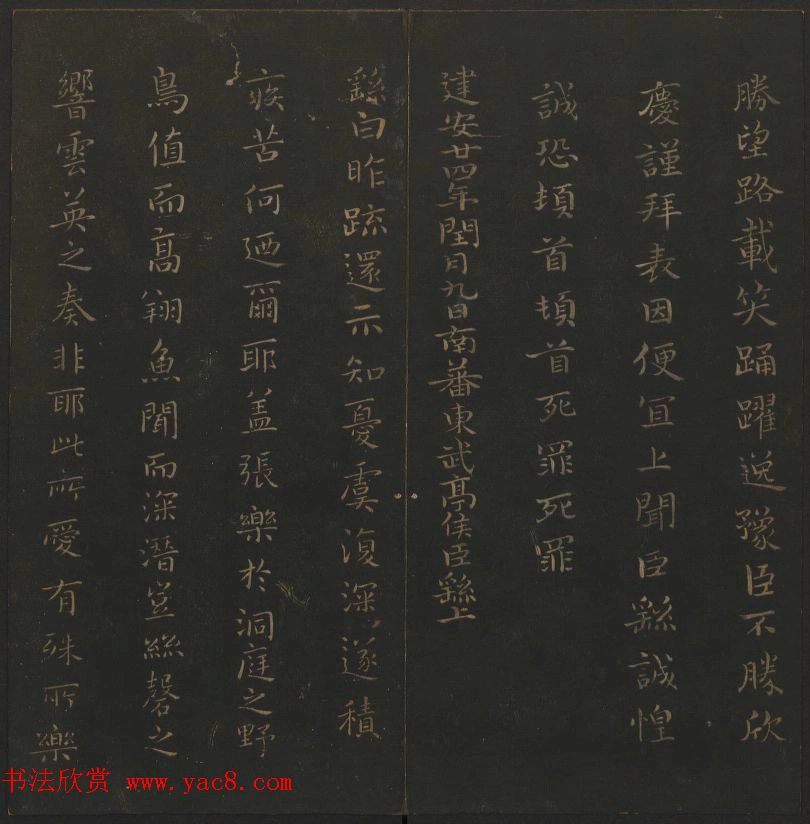 勝望路載笑踊躍逸豫臣不勝欣
慶謹拜表因便宜上聞臣繇誠惶
誠恐頓首頓首死罪死罪
建安廿四年閏月九日南蕃東武亭侯臣繇上
繇白昨疏還示知憂虞復深遂積
疾苦何迺爾耶盖張樂於洞庭之野
鳥值而高翔魚聞而深潛豈絲磬之
響雲英之奏非耶此所愛有殊所樂
书法欣赏 www.yac8.com